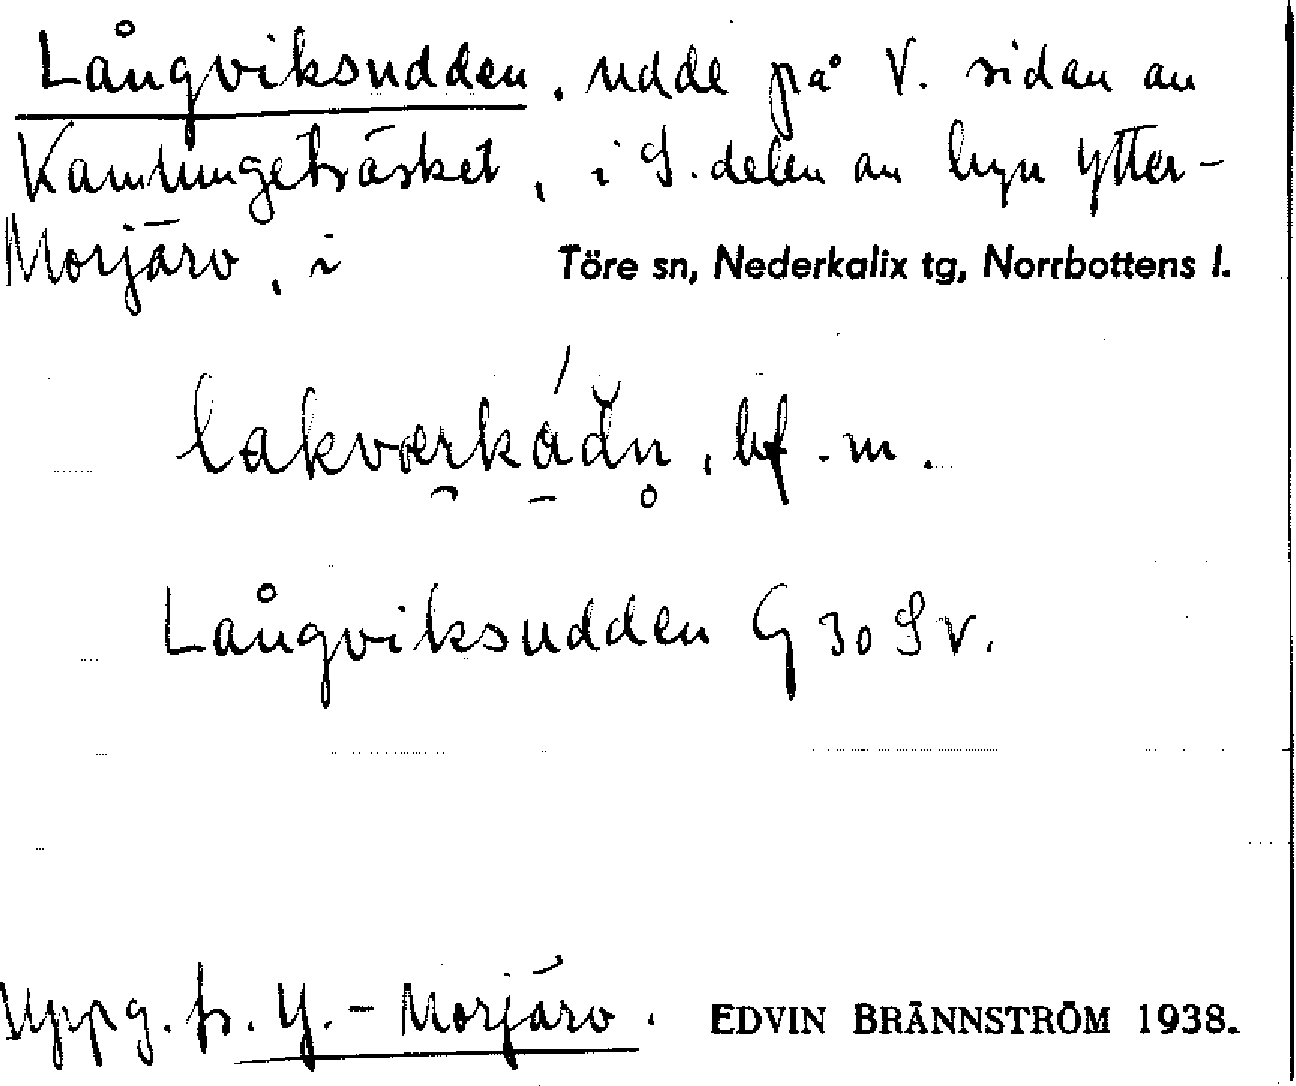 Långviksudden, udde på V. sidan av
Kamlungeträsket, i S. delen av byn Ytter-
Morjärv, i Töre sn, Nederkalix tg, Norrbottens l.
bf. m.
Långviksudden G 30 SV.
Uppg. fr. Y.-Morjärv. EDVIN BRÄNNSTRÖM 1938.